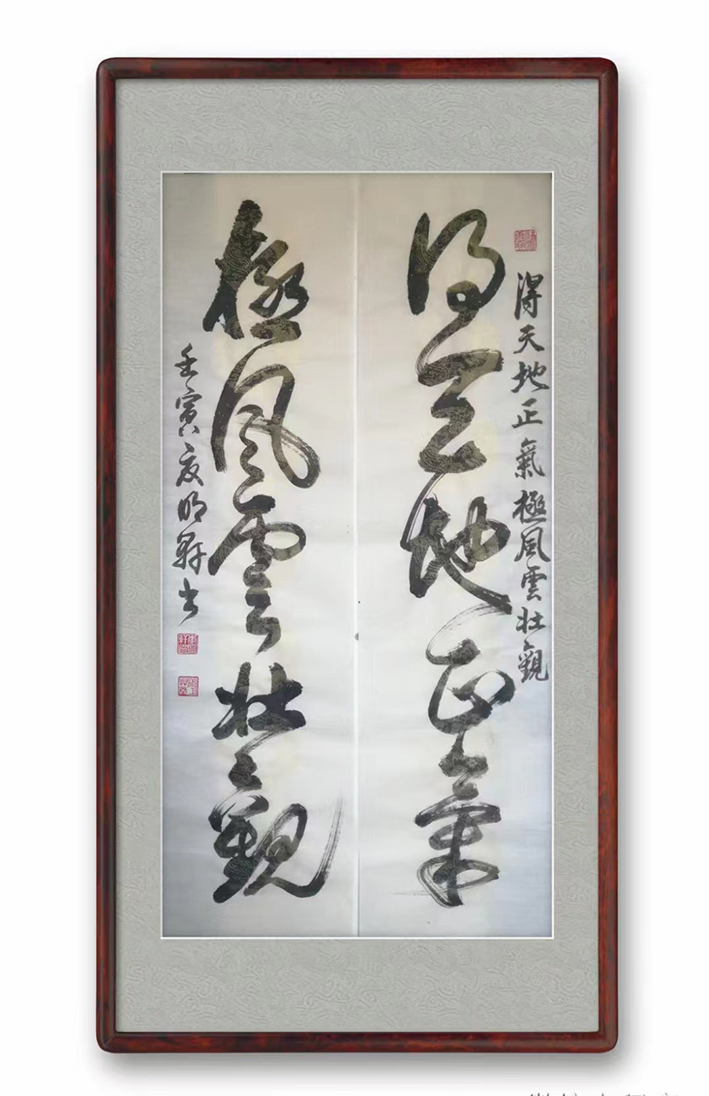 得天地正氣極風雲壯觀
得天地正氣
極風雲壯觀
壬寅夏明軒書